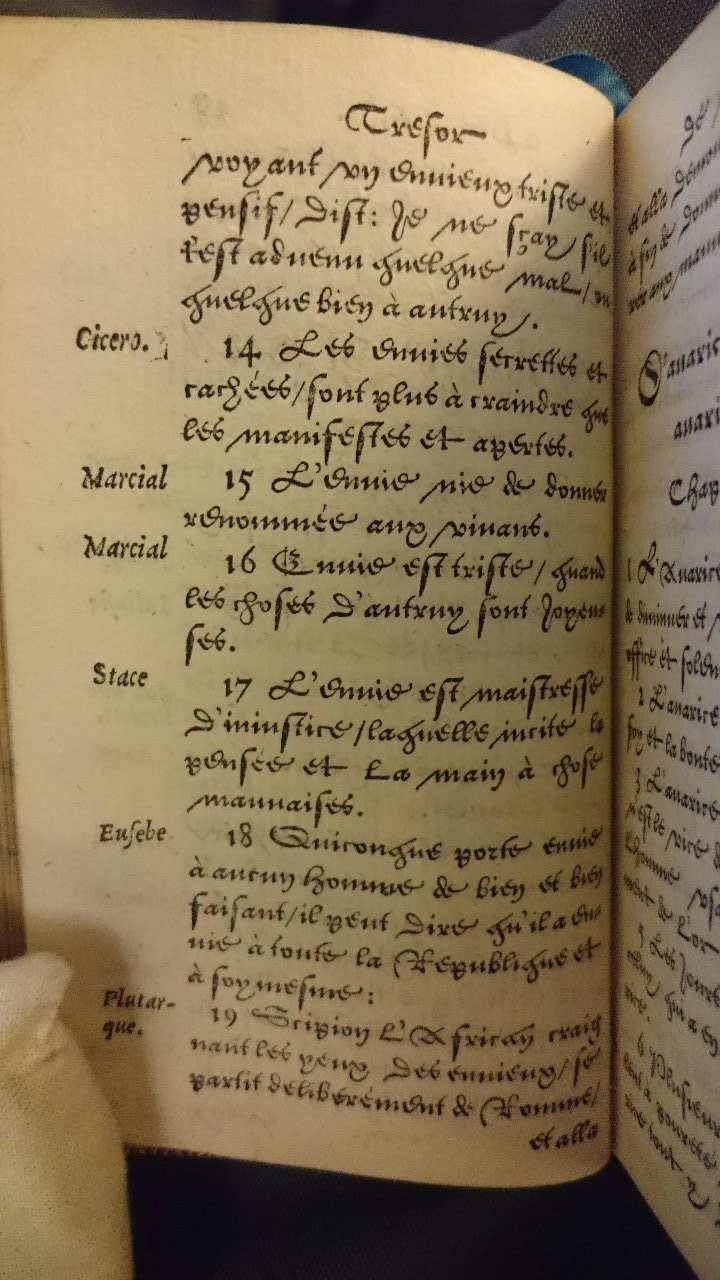 Tresor
voyant vn enuieux triste et
pensif/ dist: Je ne sçay s'il
t'est aduenu quelque mal/ ou
quelque bien à autruy.
Cicero.
14 Les enuies secrettes et
cachées/ sont plus à craindre que
les manifestes et apertes.
Marcial
15 L'enuie nie de donner
renommée aux viuans.
Marcial
16 Enuie est triste/ quand
les choses d'autruy sont Joyeu
ses.
Stace
17 L'enuie est maistresse
d'iniustice/ laquelle incite la
pensée et la main à chose
mauuaises.
Eusebe
18 Quiconque porte enuie
à aucun homme de bien et bien
faisant/ il peut dire qu'il a en-
uie à toute la Republique et
à soy mesme:
Plutar-
que.
19 Scipion L'Africain craig
nant les yeux des enuieux/ se
partit deliberément de Romme/
et alla
et alla
à fin de
Chap
1 L'Auarice
de diminuer et
office et
2 L'auarice
foy et la bonte
3 L'auarice
n'est le vice
L'homme
ment de L'or
5 Les Jours
qui a en
6 Plusieurs